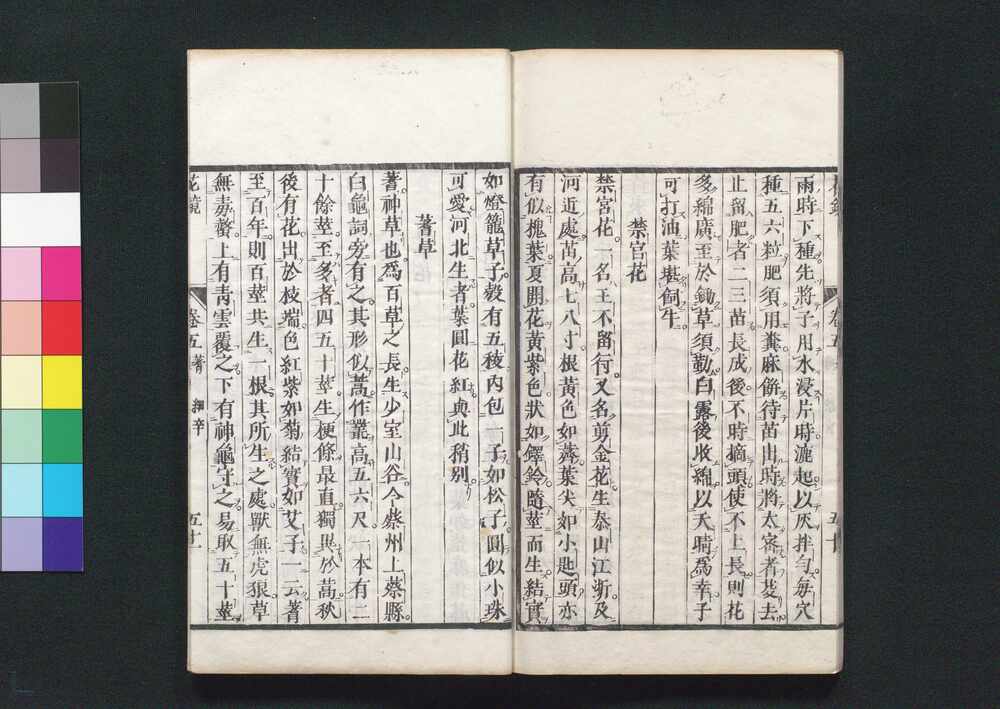 雨時下種先將子用水浸片時漉起以灰拌勻每穴
種五六粒肥須用糞麻餅待苗出時將太密者芟去
止留肥者二三苗長成後不時摘頭使不上長則花
多綿廣至於鋤草須勤白露後收綿以天晴為幸子
可打油葉堪飼牛
禁宮花
禁宮花一名王不留行又名剪金花生泰山江浙及
河近處苗高七八寸根黃色如薺葉尖如小匙頭亦
有似槐葉夏開花黃紫色狀如鐸鈴隨莖而生結實
卷五
五十
如燈籠草子殼有五稜內包一子如松子圓似小珠
可愛河北生者葉圓花紅與此稍別
蓍草
蓍神草也為百草之長生少室山谷今蔡州上蔡縣
白龜祠旁有之其形似蒿作叢高五六尺一本有二
十餘莖至多者四五十莖生梗條最直獨異於蒿秋
後有花出於枝端色紅紫如菊結實如艾子一云蓍
至百年則百莖共生一根其所生之處獸無虎狼草
無毒螫上有青雲覆之下有神龜守之易取五十莖
花鏡
卷五
蓍
細辛
五十一